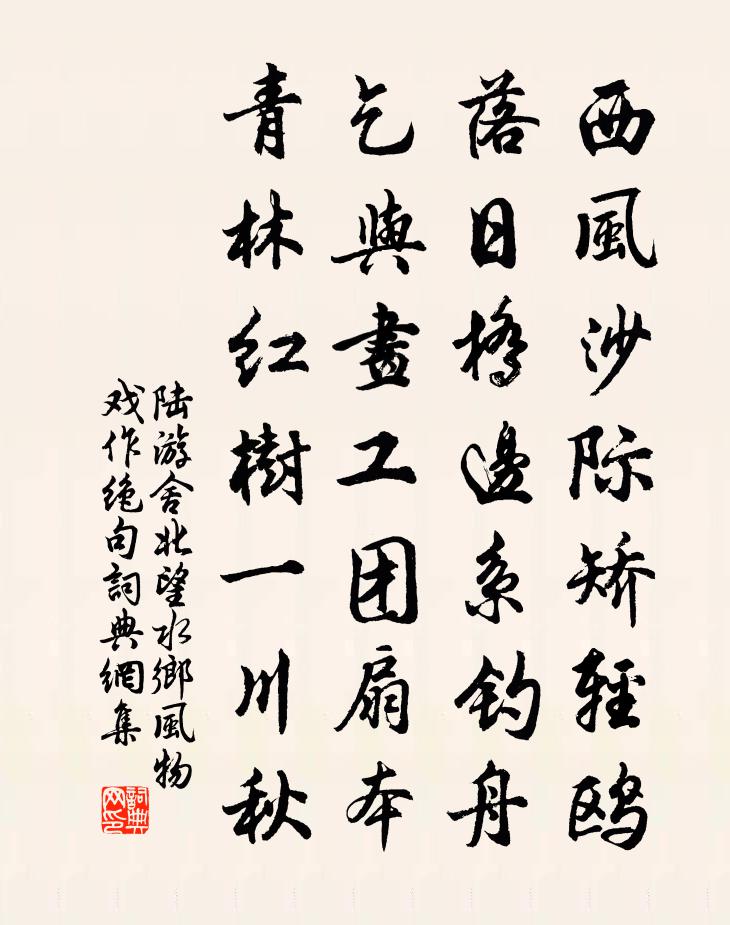 西風沙际矫輕鸥
落日橋邊系钓舟
乞與畫工团扇本
青林红樹一川秋
陆游舍北望水鄉風物
戏作绝句詞典網集
詞典
网印